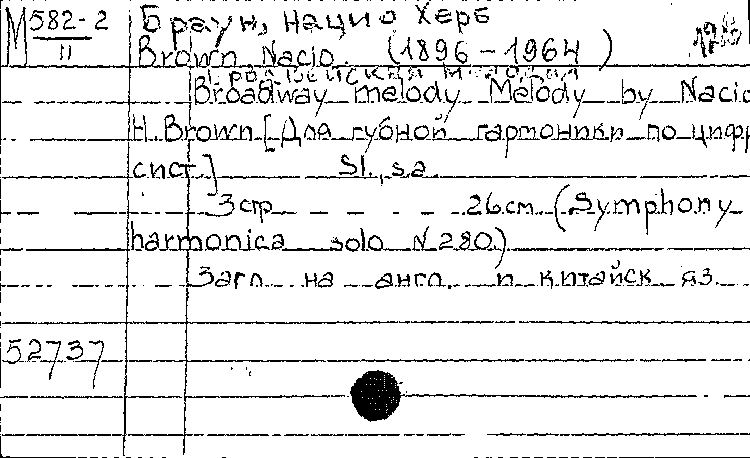 М 582-2
II
Браун, Нацио Херб
Brown Nacio. (1896-1964)
Бродвейская мелодия
Broadway melody Melody by Nacio
H. Brown [Для губной гармоники по цифр
сист.] Sl., s.a.
3 стр. 26 см. (Symphony
harmonica solo N 280.)
Загл. на англ. и китайск яз.
52737